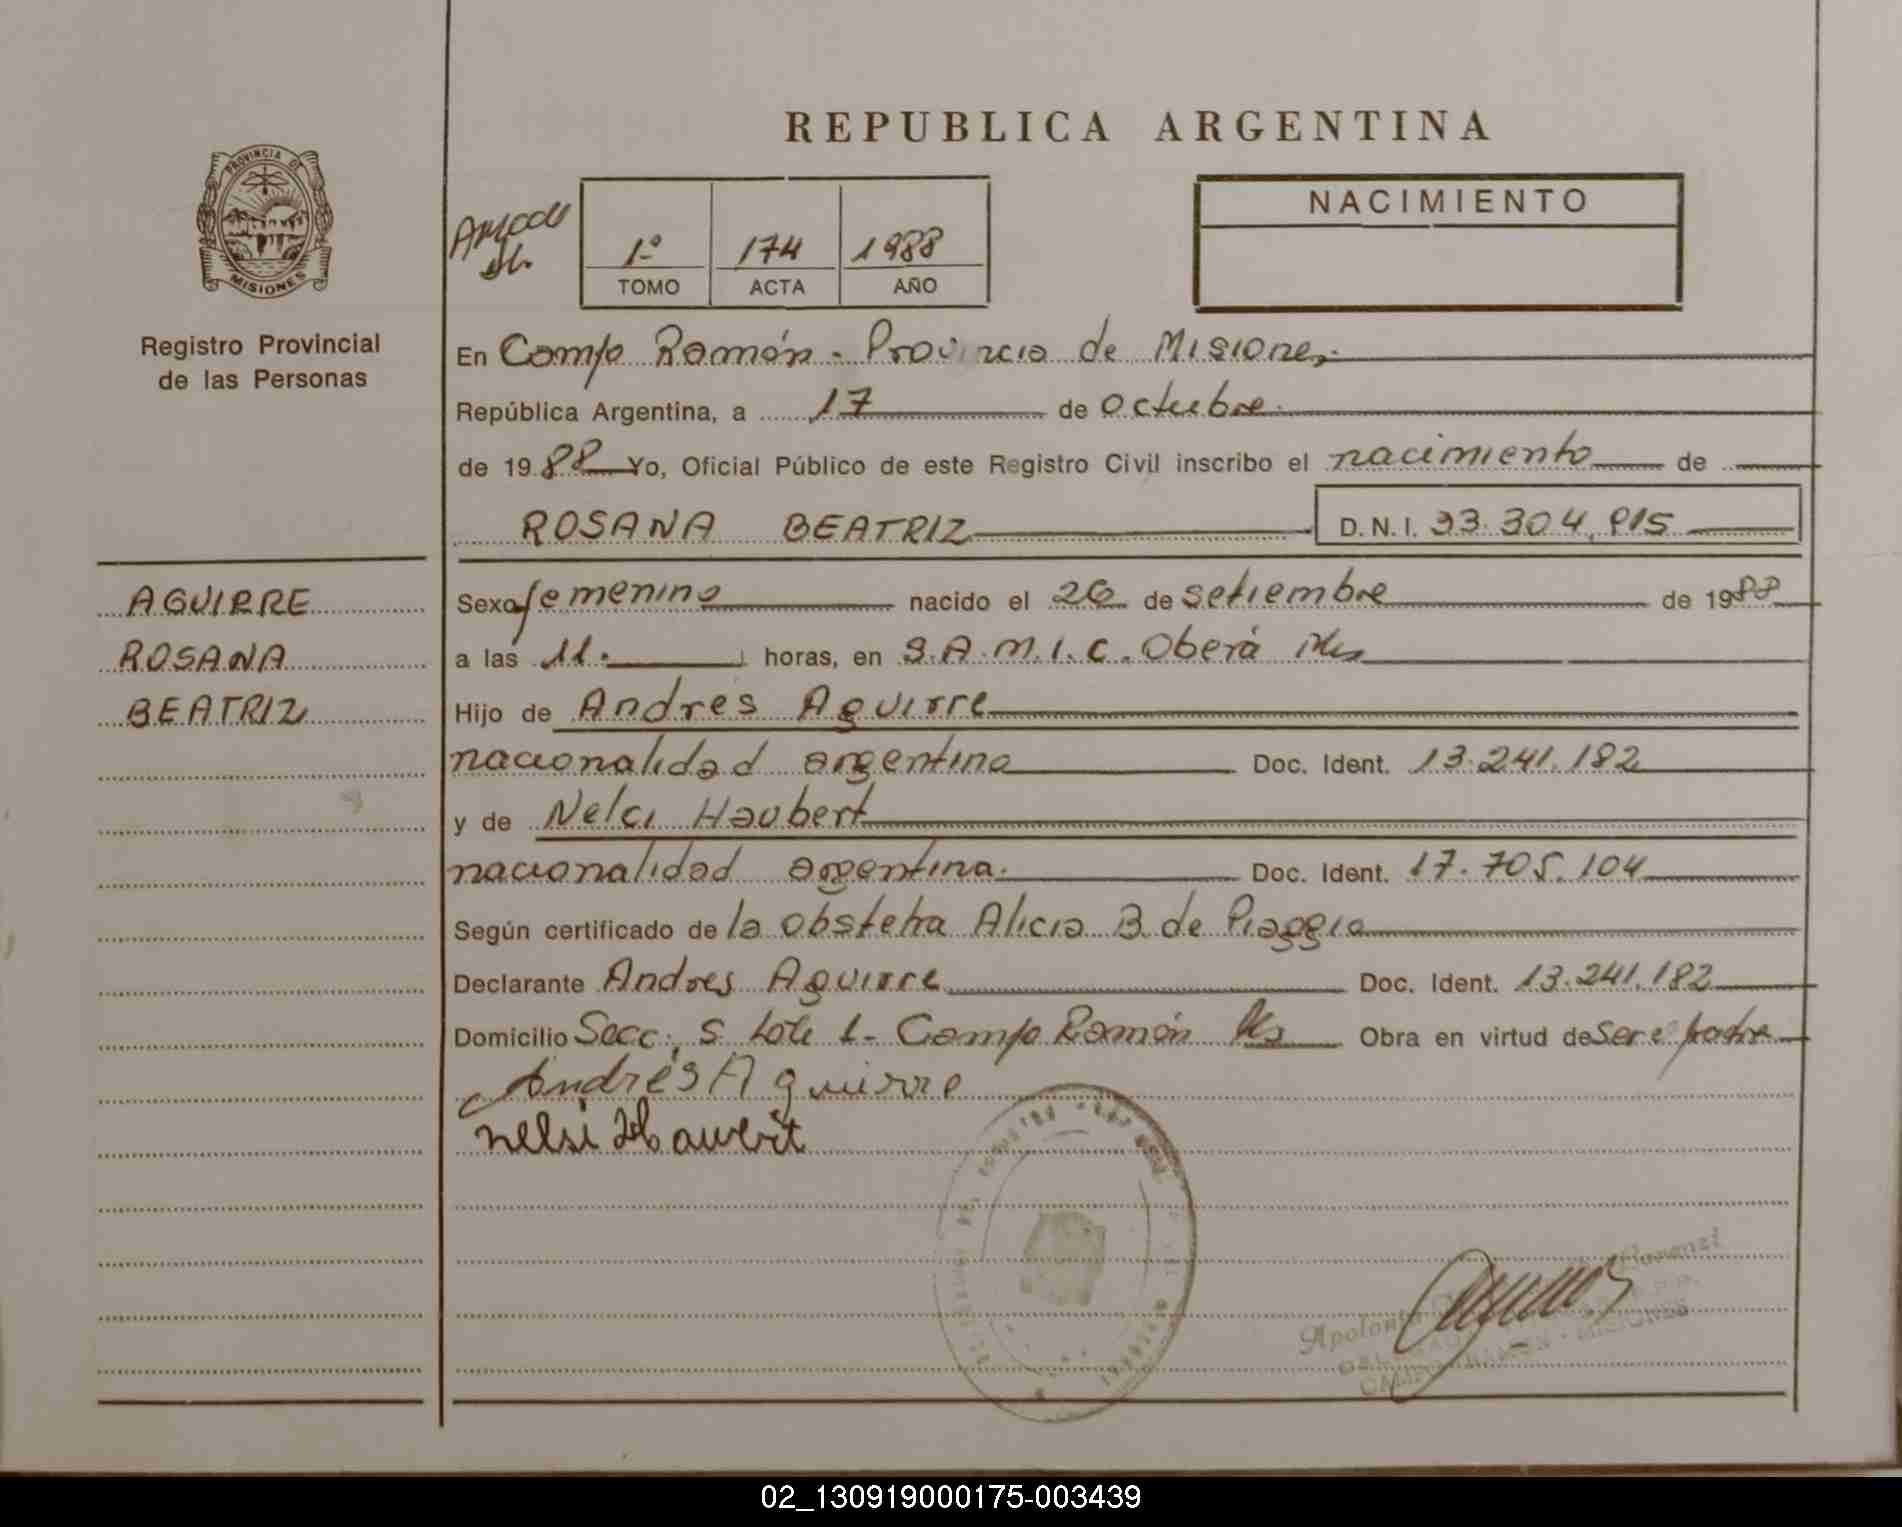 REPUBLICA ARGENTINA
PROVINCIA DE
MISIONES
Registro Provincial
de las Personas
1º 174 1988
TOMO ACTA AÑO
NACIMIENTO
En Campo Ramón - Provincia de Misiones.
República Argentina, a 17 de octubre.
de 1988 Yo, Oficial Público de este Registro Civil inscribo el nacimiento de
ROSANA BEATRIZ D.N.I. 33.304.915
AGUIRRE
ROSANA
BEATRIZ
Sexo femenino nacido el 26 de setiembre de 1988
a las 11. horas, en S.A.M.I.C. Oberá Mes
Hijo de Andrés Aguirre
nacionalidad argentina Doc. Ident. 13.241.182
y de Nelci Haubert
nacionalidad argentina. Doc. Ident. 17.705.104
Según certificado de la obstetra Alicia B. de Piaggio
Declarante Andres Aguirre Doc. Ident. 13.241.182
Domicilio Secc. 5 Lote 1- Campo Ramón Mes Obra en virtud de ser el padre
Andrés Aguirre
nelsi Hauvert
CAMPO RAMON - MISIONES
02_130919000175-003439